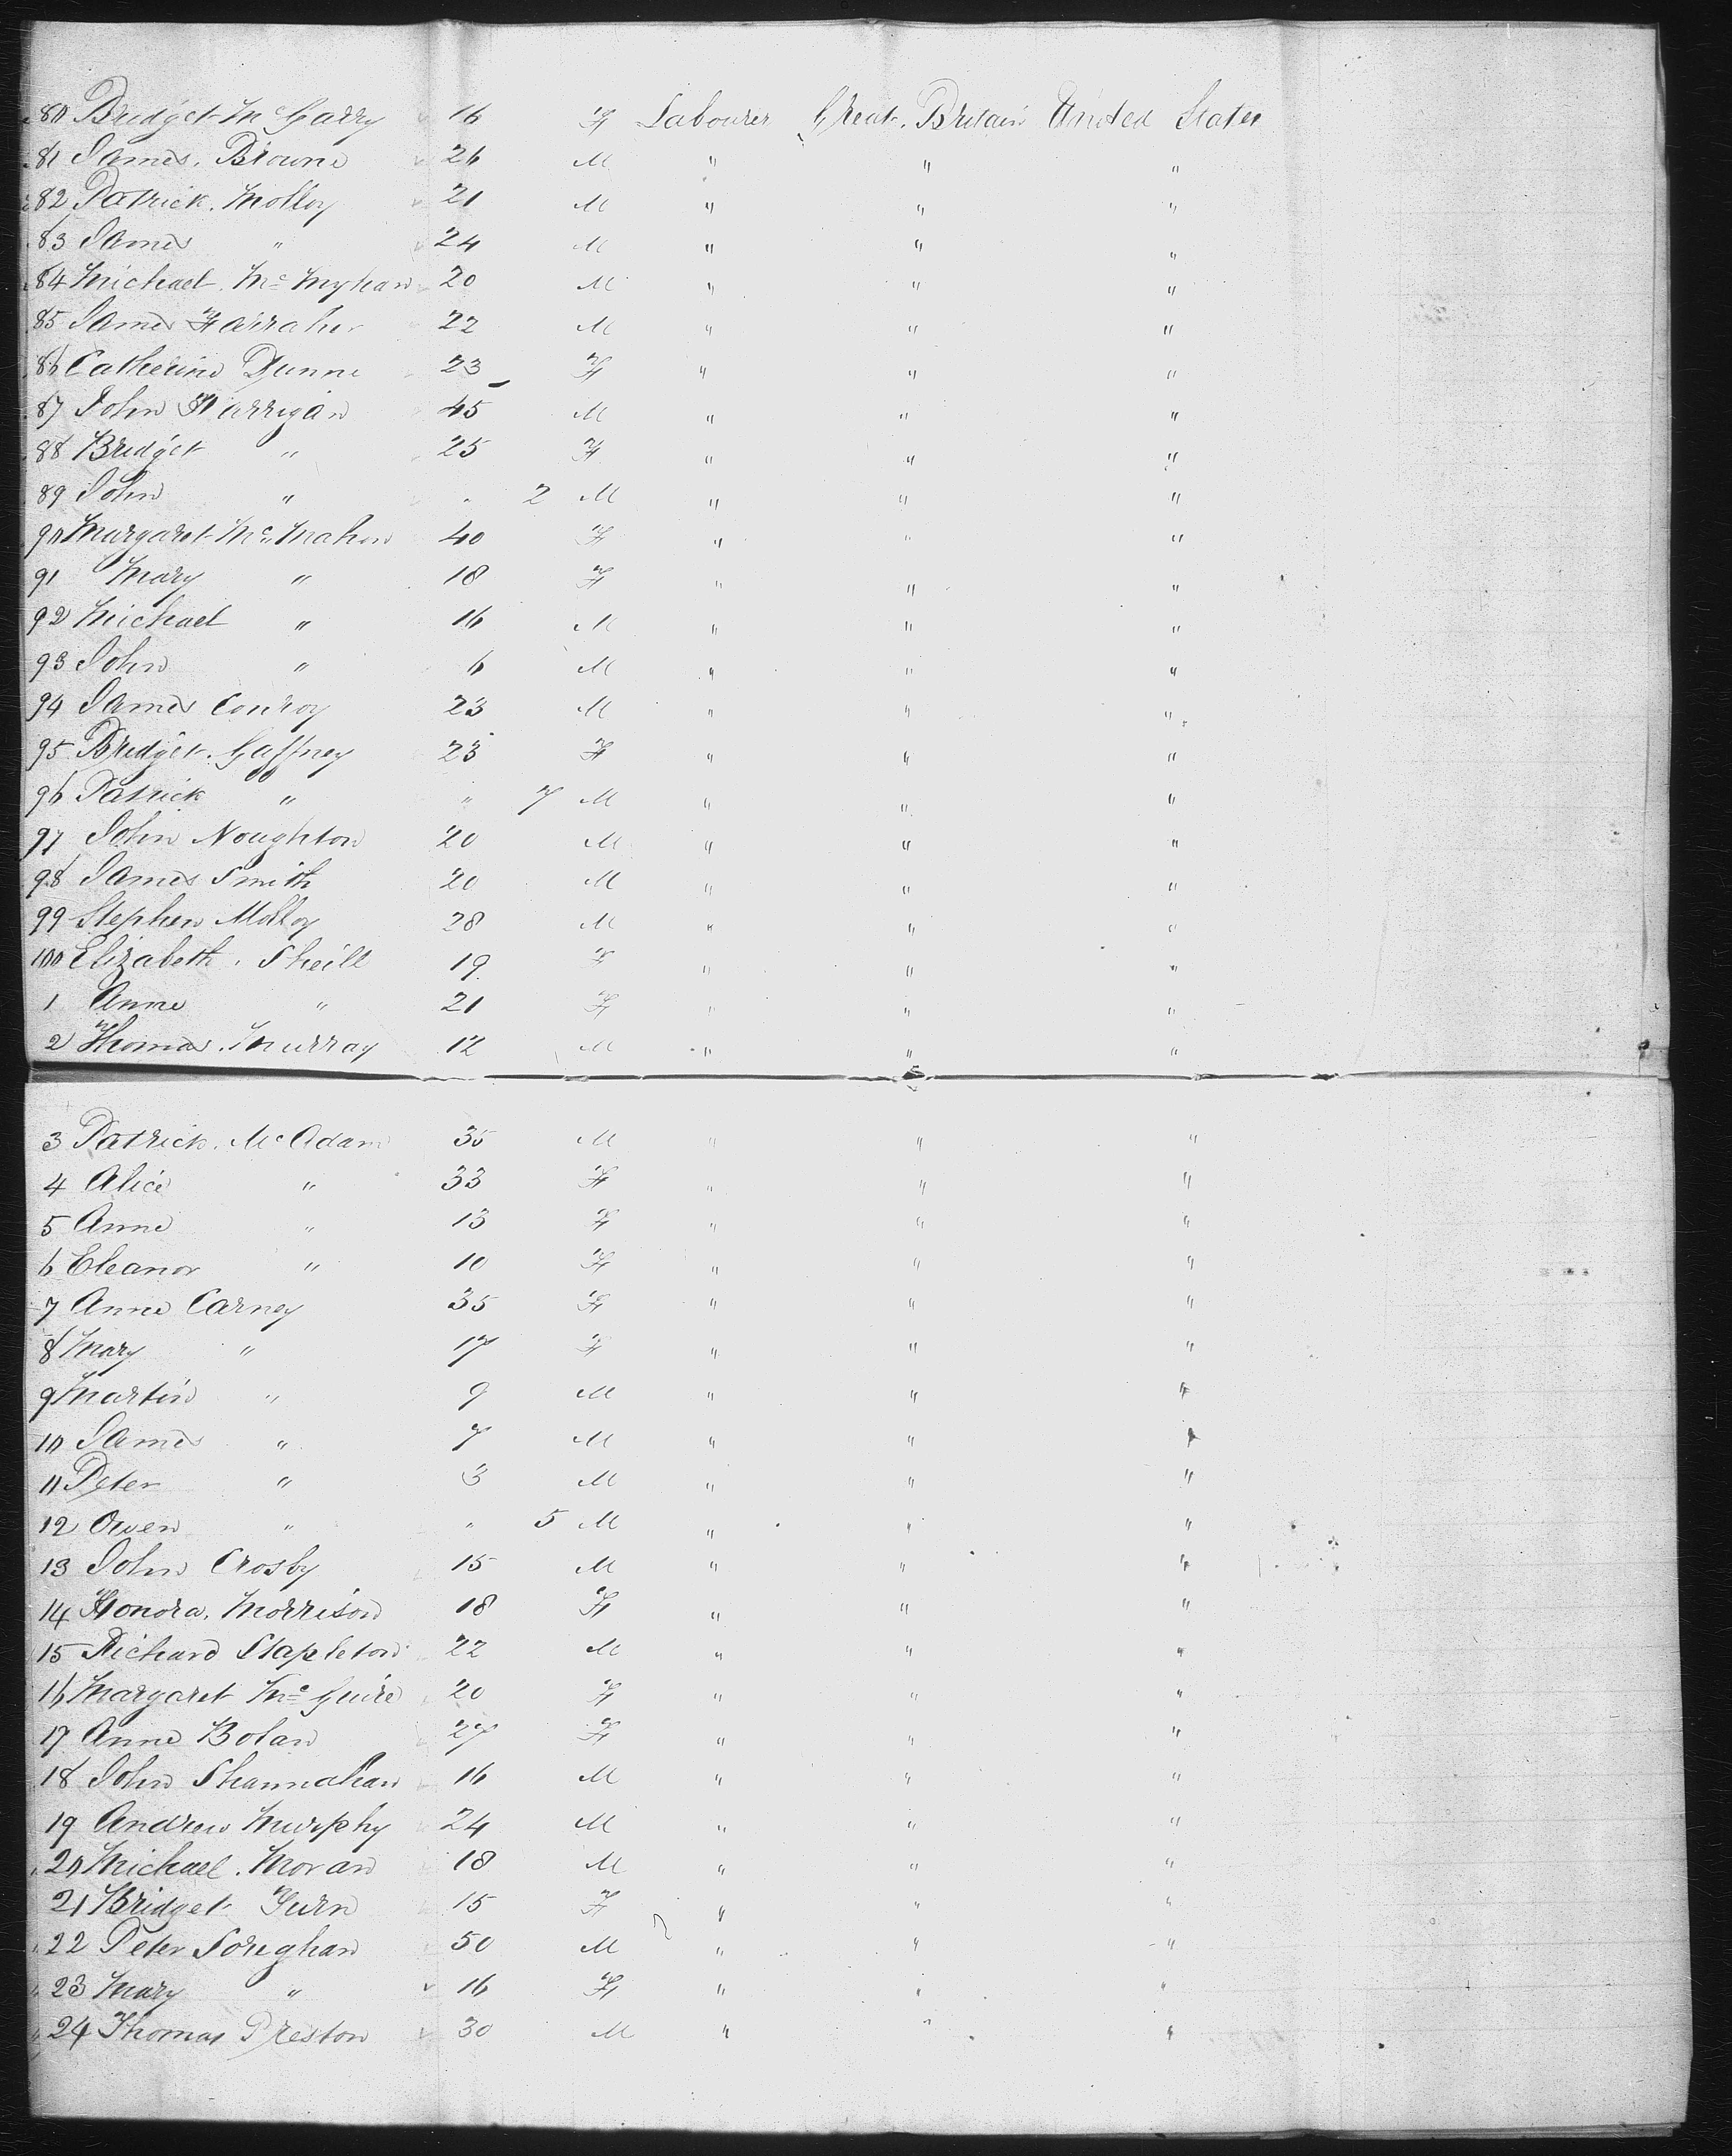 80 Bridget McGarry 16 F Labourer Great Britain United States
81 James Browne 26 M " " "
82 Patrick Molloy 21 M " " "
83 James " 24 M " " "
84 Michael Mc 20 M " " "
85 James Farraher 22 M " " "
86 Catherine Dunne 23 F " " "
87 John Harrigan 45 M " " "
88 Bridget " 25 F " " "
89 John " " 2 M " " "
90 Margaret McMahon 40 F " " "
91 Mary " 18 F " " "
92 Michael " 16 M " " "
93 John " 6 M " " "
94 James Conroy 23 M " " "
95 Bridget Gaffney 23 F " " "
96 Patrick " " 7 M " " "
97 John Noughton 20 M " " "
98 James Smith 20 M " " "
99 Stephen Molloy 28 M " " "
100 Elizabeth Sheill 19 F " " "
1 Anne " 21 F " " "
2 Thomas Murray 12 M " " "
3 Patrick McAdam 35 M " " "
4 Alice " 33 F " " "
5 Anne " 13 F " " "
6 Eleanor " 10 F " " "
7 Anne Carney 35 F " " "
8 Mary " 17 F " " "
9 Martin " 9 M " " "
10 James " 7 M " " "
11 Peter " 3 M " " "
12 Owen " " 5 M " " "
13 John Crosby 15 M " " "
14 Honora Morrison 18 F " " "
15 Richard Stapleton 22 M " " "
16 Margaret McGuire 20 F " " "
17 Anne Bolan 27 F " " "
18 John Shannahan 16 M " " "
19 Andrew Murphy 24 M " " "
20 Michael Moran 18 M " " "
21 Bridget 15 F " " "
22 Peter Soreghan 50 M " " "
23 Mary " 16 F " " "
24 Thomas Preston 30 M " " "